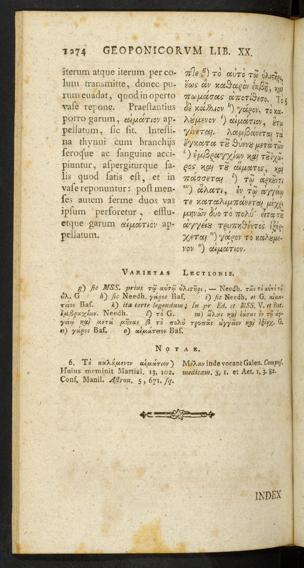 1274 GEOPONICORVM LIB. XX.
iterum atque iterum per co-
lum transmitte, donec pu-
rum euadat, quod in operto
vase repone. Praestantius
porro garum, αἱμάτιον ap-
pellatum, sic fit. Intesti-
na thynni cum branchijs
feroque ac sanguine acci-
piuntur, aspergiturque sa-
lis quod satis est, et in
vase reponuntur: post men-
ses autem ferme duos vas
ipsum perforetur, efflu-
etque garum αἱμάτιον ap-
pellatum.
τὸ αὐτὸ τῷ
ἕως ἂν καθαρὸν ἐκβῇ, καὶ
πωμάσας ἀποτίθεσο. Τὸ 6
δὲ κάλλιον γάρον, τὸ κα-
λούμενον αἱμάτιον,
γίνεται. λαμβάνεται τὰ
ἔγκατα τοῦ θύννου μετὰ τῶν
βραγχίων καὶ τοῦ ἰχῶ-
ρος καὶ τοῦ αἵματος, καὶ
πάσσεται τῷ ἀρκοῦντι
ἅλατι, ἐν τῷ ἀγγείῳ
τε καταλιμπάνεται μέχρι
μηνῶν δύο τὸ πολὺ· εἶτα τοῦ
ἀγγείου τρυπηθέντος ἐξέρ-
χεται γάρον τὸ καλούμε-
νον αἱμάτιον.
VARIETAS LECTIONIS.
g) sic MSS. prius τῷ αὐτῷ — Needh.
G h) sic Needh. γάρος Bas. i) sic Needh. et G.
Bas. k) ita certe legendum; In pr. Ed. et MSS. V. et Bat.
Needh. l) τὸ G.
G.
n) γάρος Bas. o) Bas.
NOTAE.
6. Τὸ καλούμενον αἱμάτιον)
Huius meminit Martial. 13, 102.
Conf. Manil. Astron. 5, 671. sq.
inde vocant Galen. Compos.
medicam. 3, 1. et Aet. 1, 3. 82.
INDEX